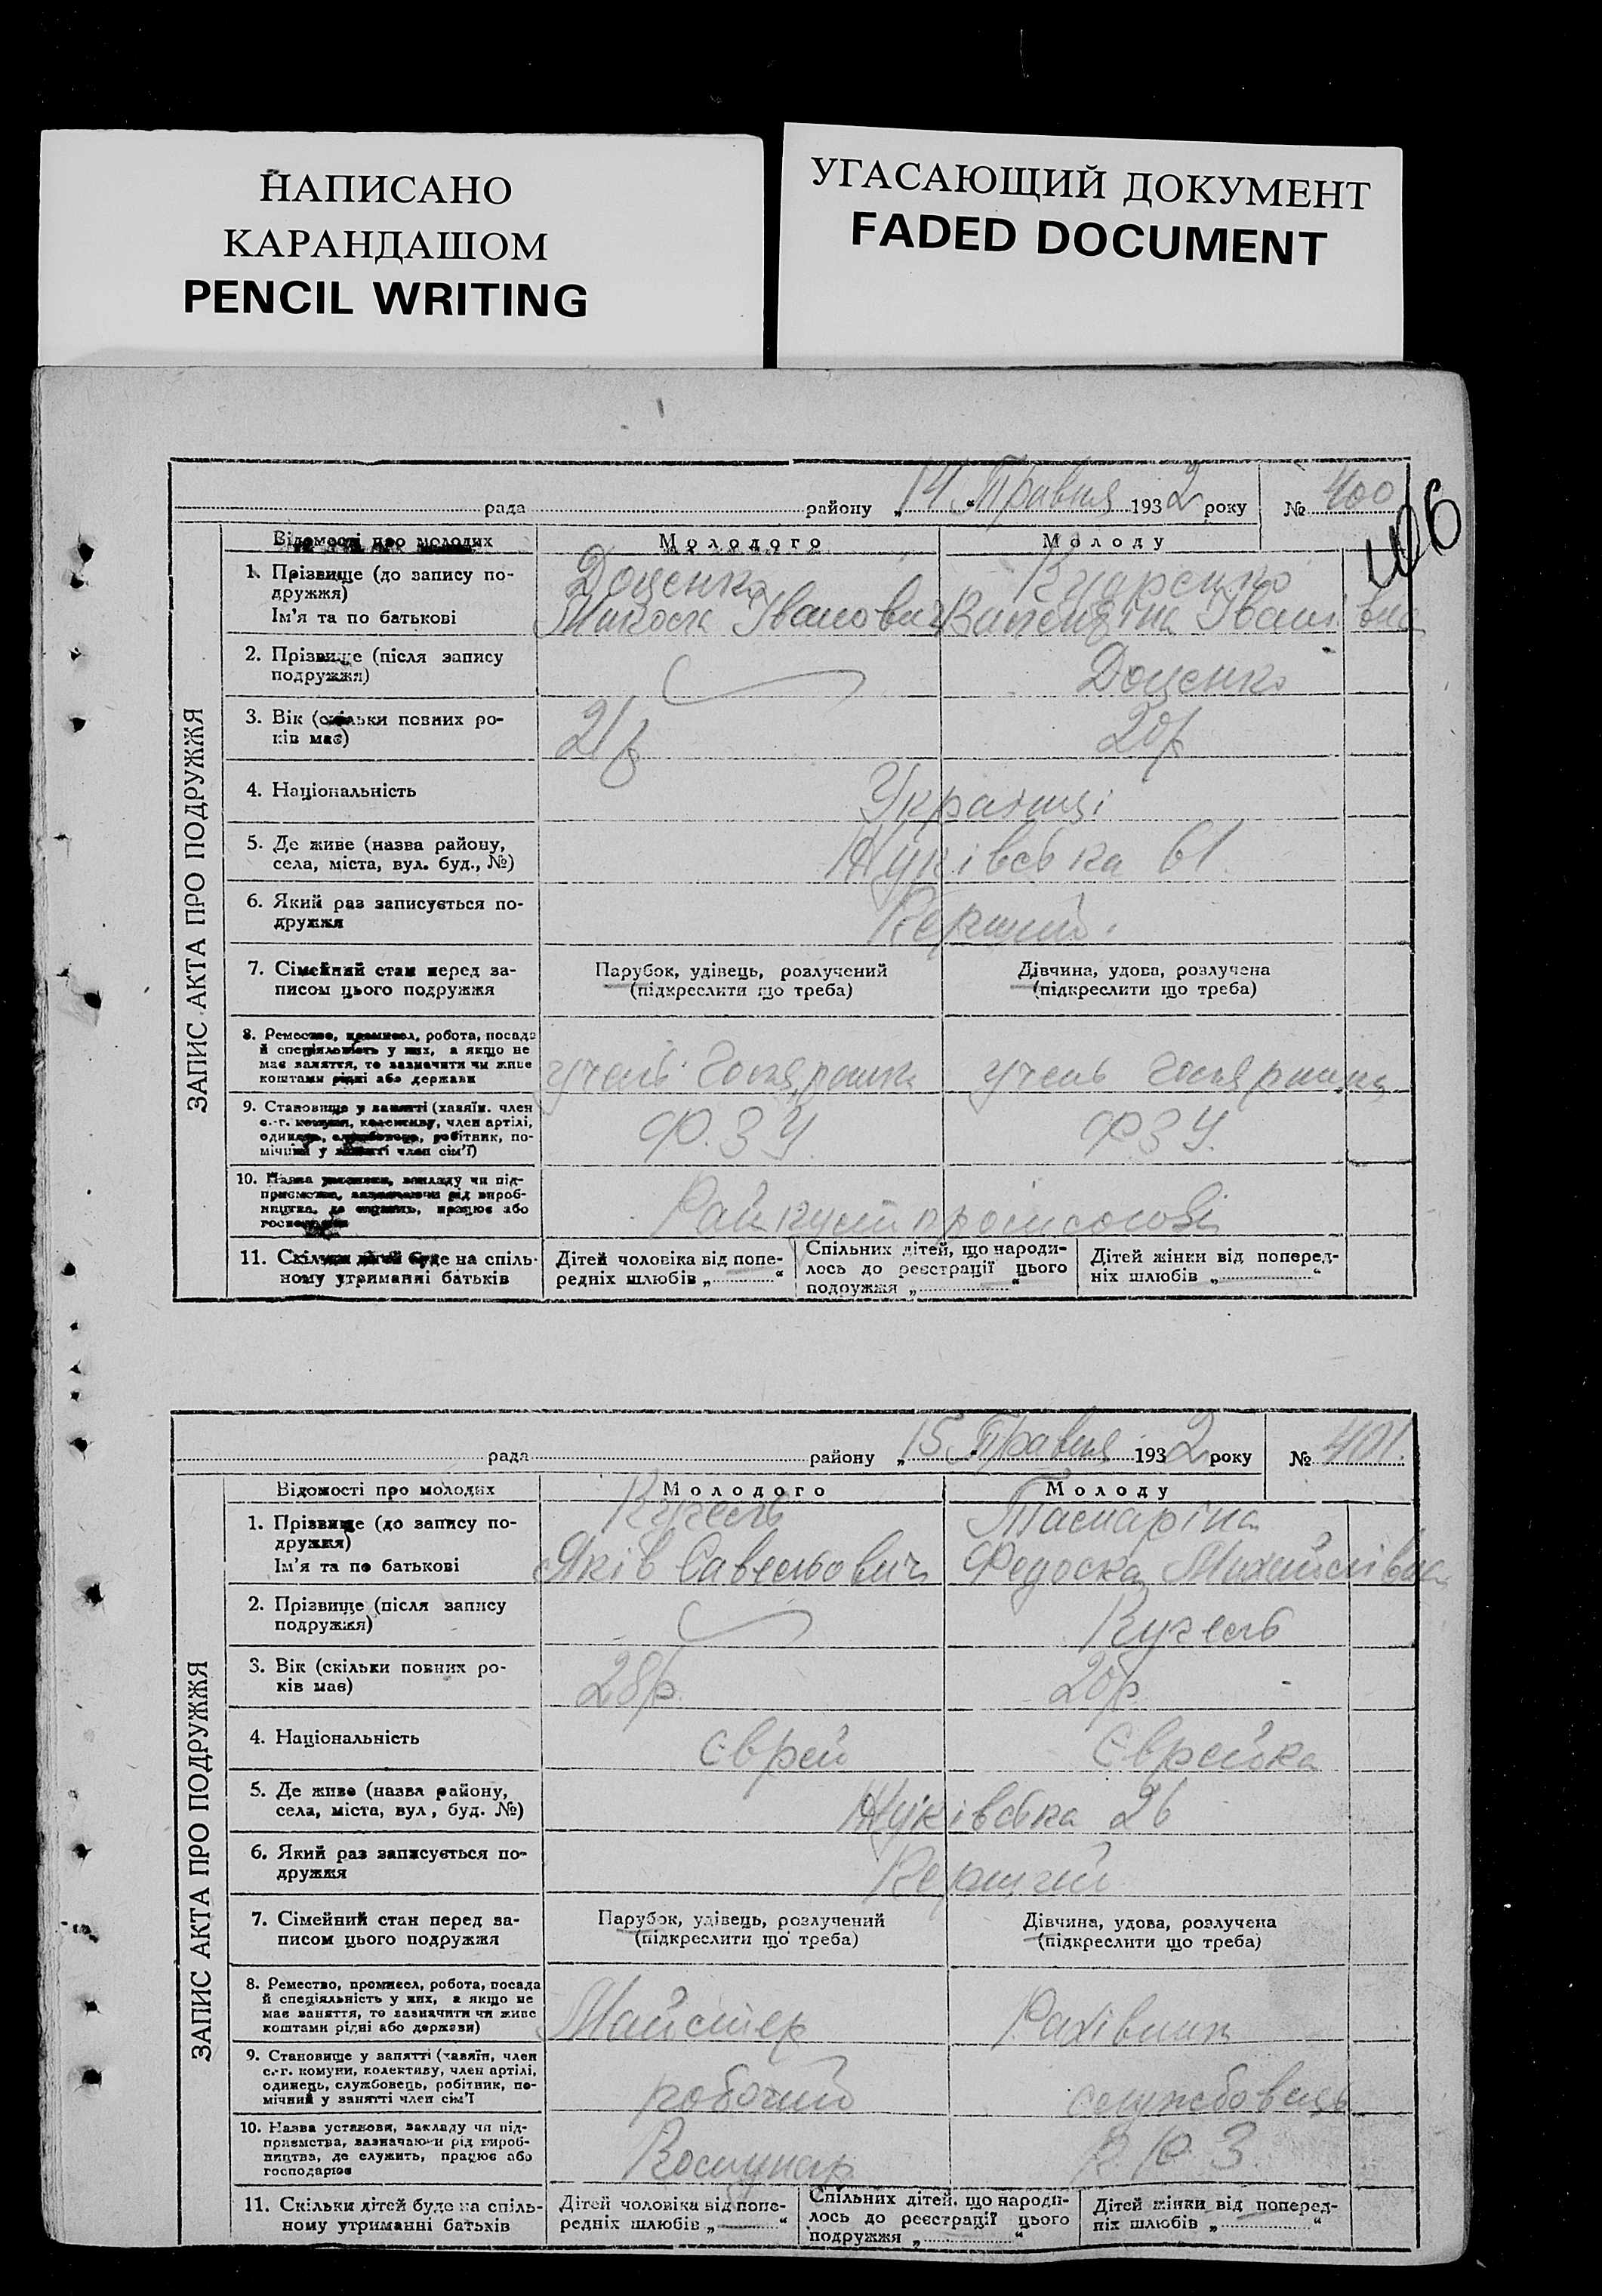 НАПИСАНО
КАРАНДАШОМ
PENCIL WRITING
УГАСАЮЩИЙ ДОКУМЕНТ
FADED DOCUMENT
рада району „14“ Травня 1932 року № 400
406
ЗАПИС АКТА ПРО ПОДРУЖЖЯ
Відомості про молодих Молодого Молоду
1. Прізвище (до запису по-
дружжя) Доценко
Ім'я та по батькові Микола Іванович Валентіна Іванівна
2. Прізвище (після запису
подружжя) Доценко
3. Вік (скільки повних ро-
ків має) 21 р 20 р
4. Національність Українці
5. Де живе (назва району,
села, міста, вул. буд., №) Жуківська 61
6. Який раз записується по-
дружжя Перший
7. Сімейний стан перед за-
писом цього подружжя
Парубок, удівець, розлучений
(підкреслити що треба)
Дівчина, удова, розлучена
(підкреслити що треба)
8. Ремество, промисел, робота, посада
й спеціяльність у них, а якщо не
має заняття, то зазначити чи живе
коштами рідні або держави
учень учень
9. Становище у занятті (хазяїн. член
с.-г. комуни, колективу, член артілі,
одинець, службовець, робітник, по-
мічний у занятті член сім'ї)
Ф.З.У. Ф.З.У.
10. Назва установи, закладу чи під-
приємства, зазначаючи рід вироб-
ництва, де служить, працює або
господарює
11. Скільки дітей буде на спіль-
ному утриманні батьків
Дітей чоловіка від попе-
редніх шлюбів „ “
Спільних дітей, що народи-
лось до реєстрації цього
подружжя „ “
Дітей жінки від поперед-
ніх шлюбів „ “
рада району „15“ Травня 1932 року № 401.
ЗАПИС АКТА ПРО ПОДРУЖЖЯ
Відомості про молодих Молодого Молоду
1. Прізвище (до запису по-
дружжя) Кугель
Ім'я та по батькові Яків Савельович Федоска Михайлівна
2. Прізвище (після запису
подружжя) Кугель
3. Вік (скільки повних ро-
ків має) 28 р. 20 р
4. Національність Єврей Єврейка
5. Де живе (назва району,
села, міста, вул, буд. №) Жуківська 26
6. Який раз записується по-
дружжя Перший
7. Сімейний стан перед за-
писом цього подружжя
Парубок, удівець, розлучений
(підкреслити що треба)
Дівчина, удова, розлучена
(підкреслити що треба)
8. Ремество, промисел, робота, посада
й спеціяльність у них, а якщо не
має заняття, то зазначити чи живе
коштами рідні або держави)
Майстер Рахівник
9. Становище у занятті (хазяїн, член
с.-г. комуни, колективу, член артілі,
одинець, службовець, робітник, по-
мічний у занятті член сім'ї
робочий службовець
10. Назва установи, закладу чи під-
приємства, зазначаючи рід вироб-
ництва, де служить, працює або
господарює
Комунар
11. Скільки дітей буде на спіль-
ному утриманні батьків
Дітей чоловіка від попе-
редніх шлюбів „ “
Спільних дітей, що народи-
лось до реєстрації цього
подружжя „ “
Дітей жінки від поперед-
ніх шлюбів „ “